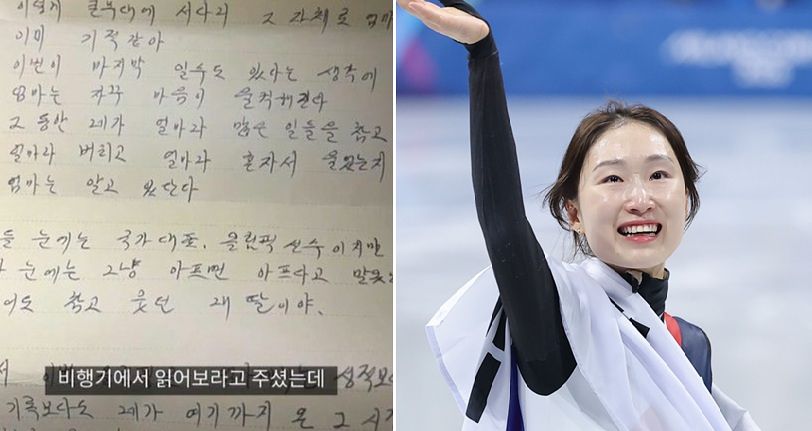 이렇게 큰무대에 서다니 그 자체로 엄마
이미 기적 같아
이번이 마지막 일수도 있다는 생각에
엄마는 자꾸 마음이 울컥해진다
그 동안 네가 얼마나 많은 일들을 참고
얼마나 버티고 얼마나 혼자서 울었는지
엄마는 알고 있단다
들 눈에는 국가대표. 올림픽 선수 이지만
눈에는 그냥 아프면 아프다고 말못
어도 참고 웃던 내 딸이야.
비행기에서 읽어보라고 주셨는데
성적보다
기록보다도 네가 여기까지 온 그 시